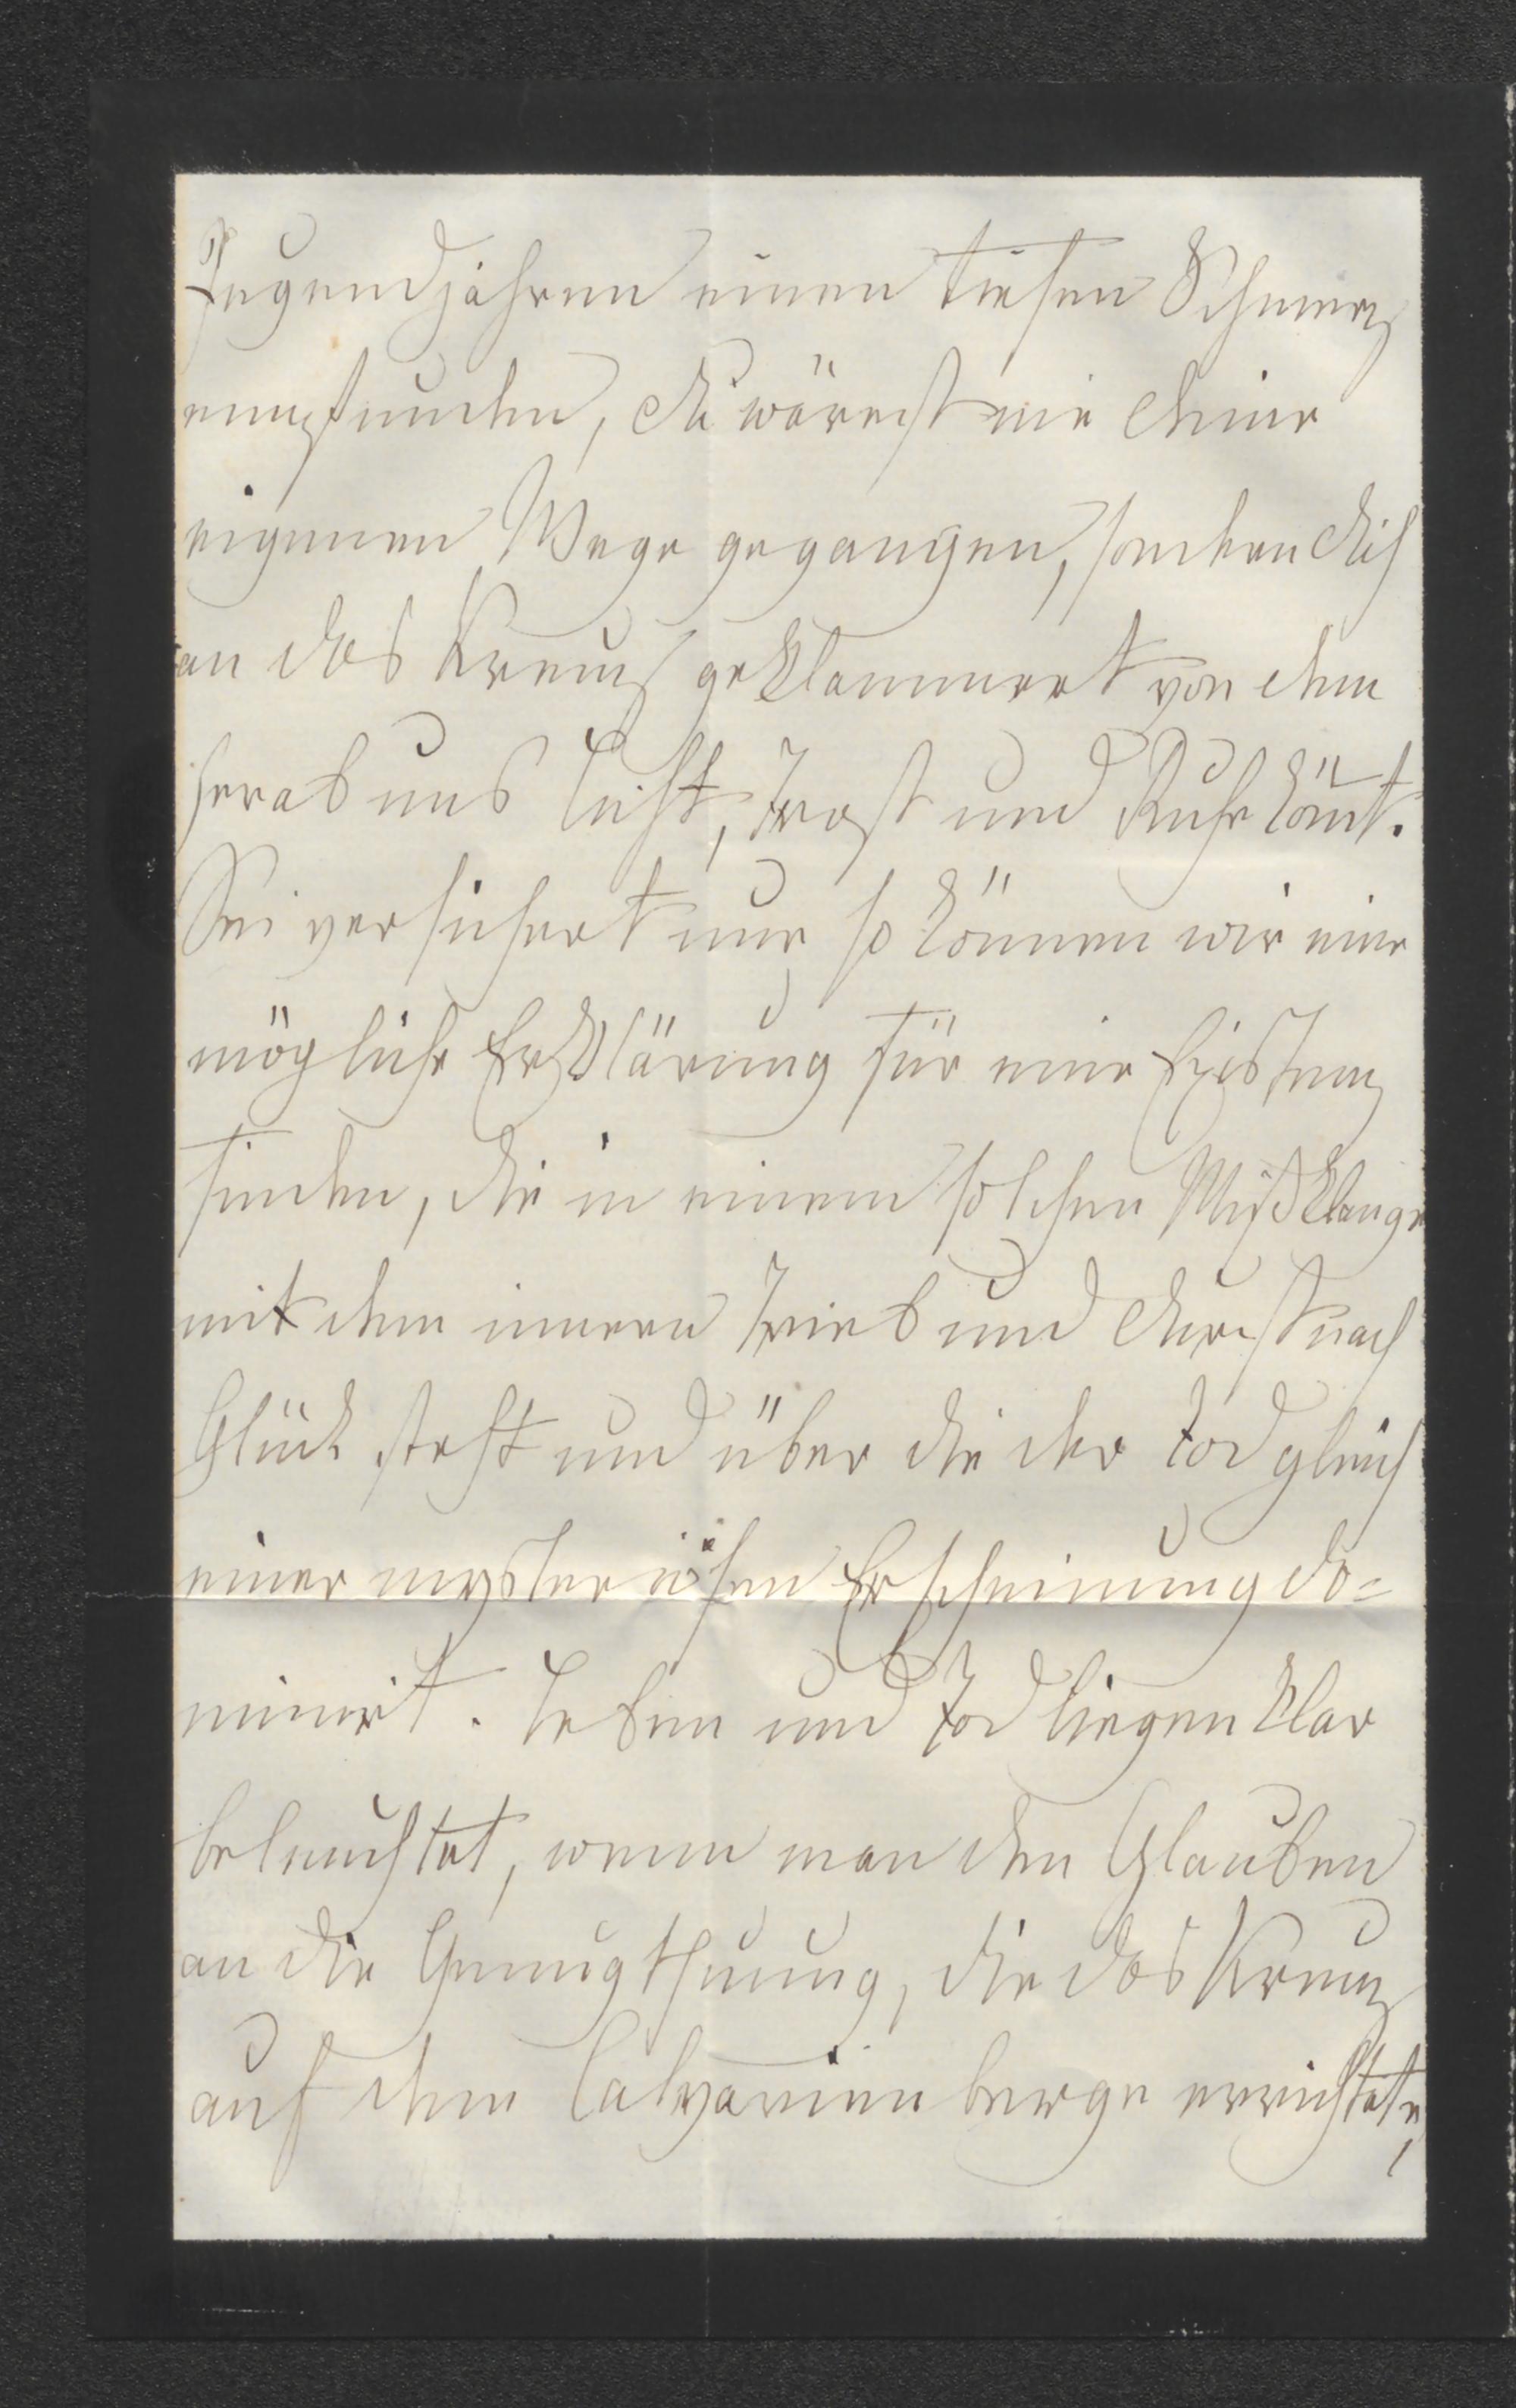 Jugendjahren einen tiefen Schmerz
empfunden, du wärest nie deine
eigenen Wege gegangen, sondern dich
an das Kreuz geklammert von dem
herab uns Licht, Trost und Ruhe kömt.
Sei versichert nur so können wir eine
mögliche Erklärung für eine Existenz
finden, die in einem solchen Mißklange
mit dem innern Trieb und Durst nach
Glück steht und über die der Tod gleich
einer mysteriösen Erscheinung do=
minirt. Leben und Tod liegen klar
beleuchtet, wenn man den Glauben
an die Genugthuung, die das Kreuz
auf dem Calvarienberge errichtete,